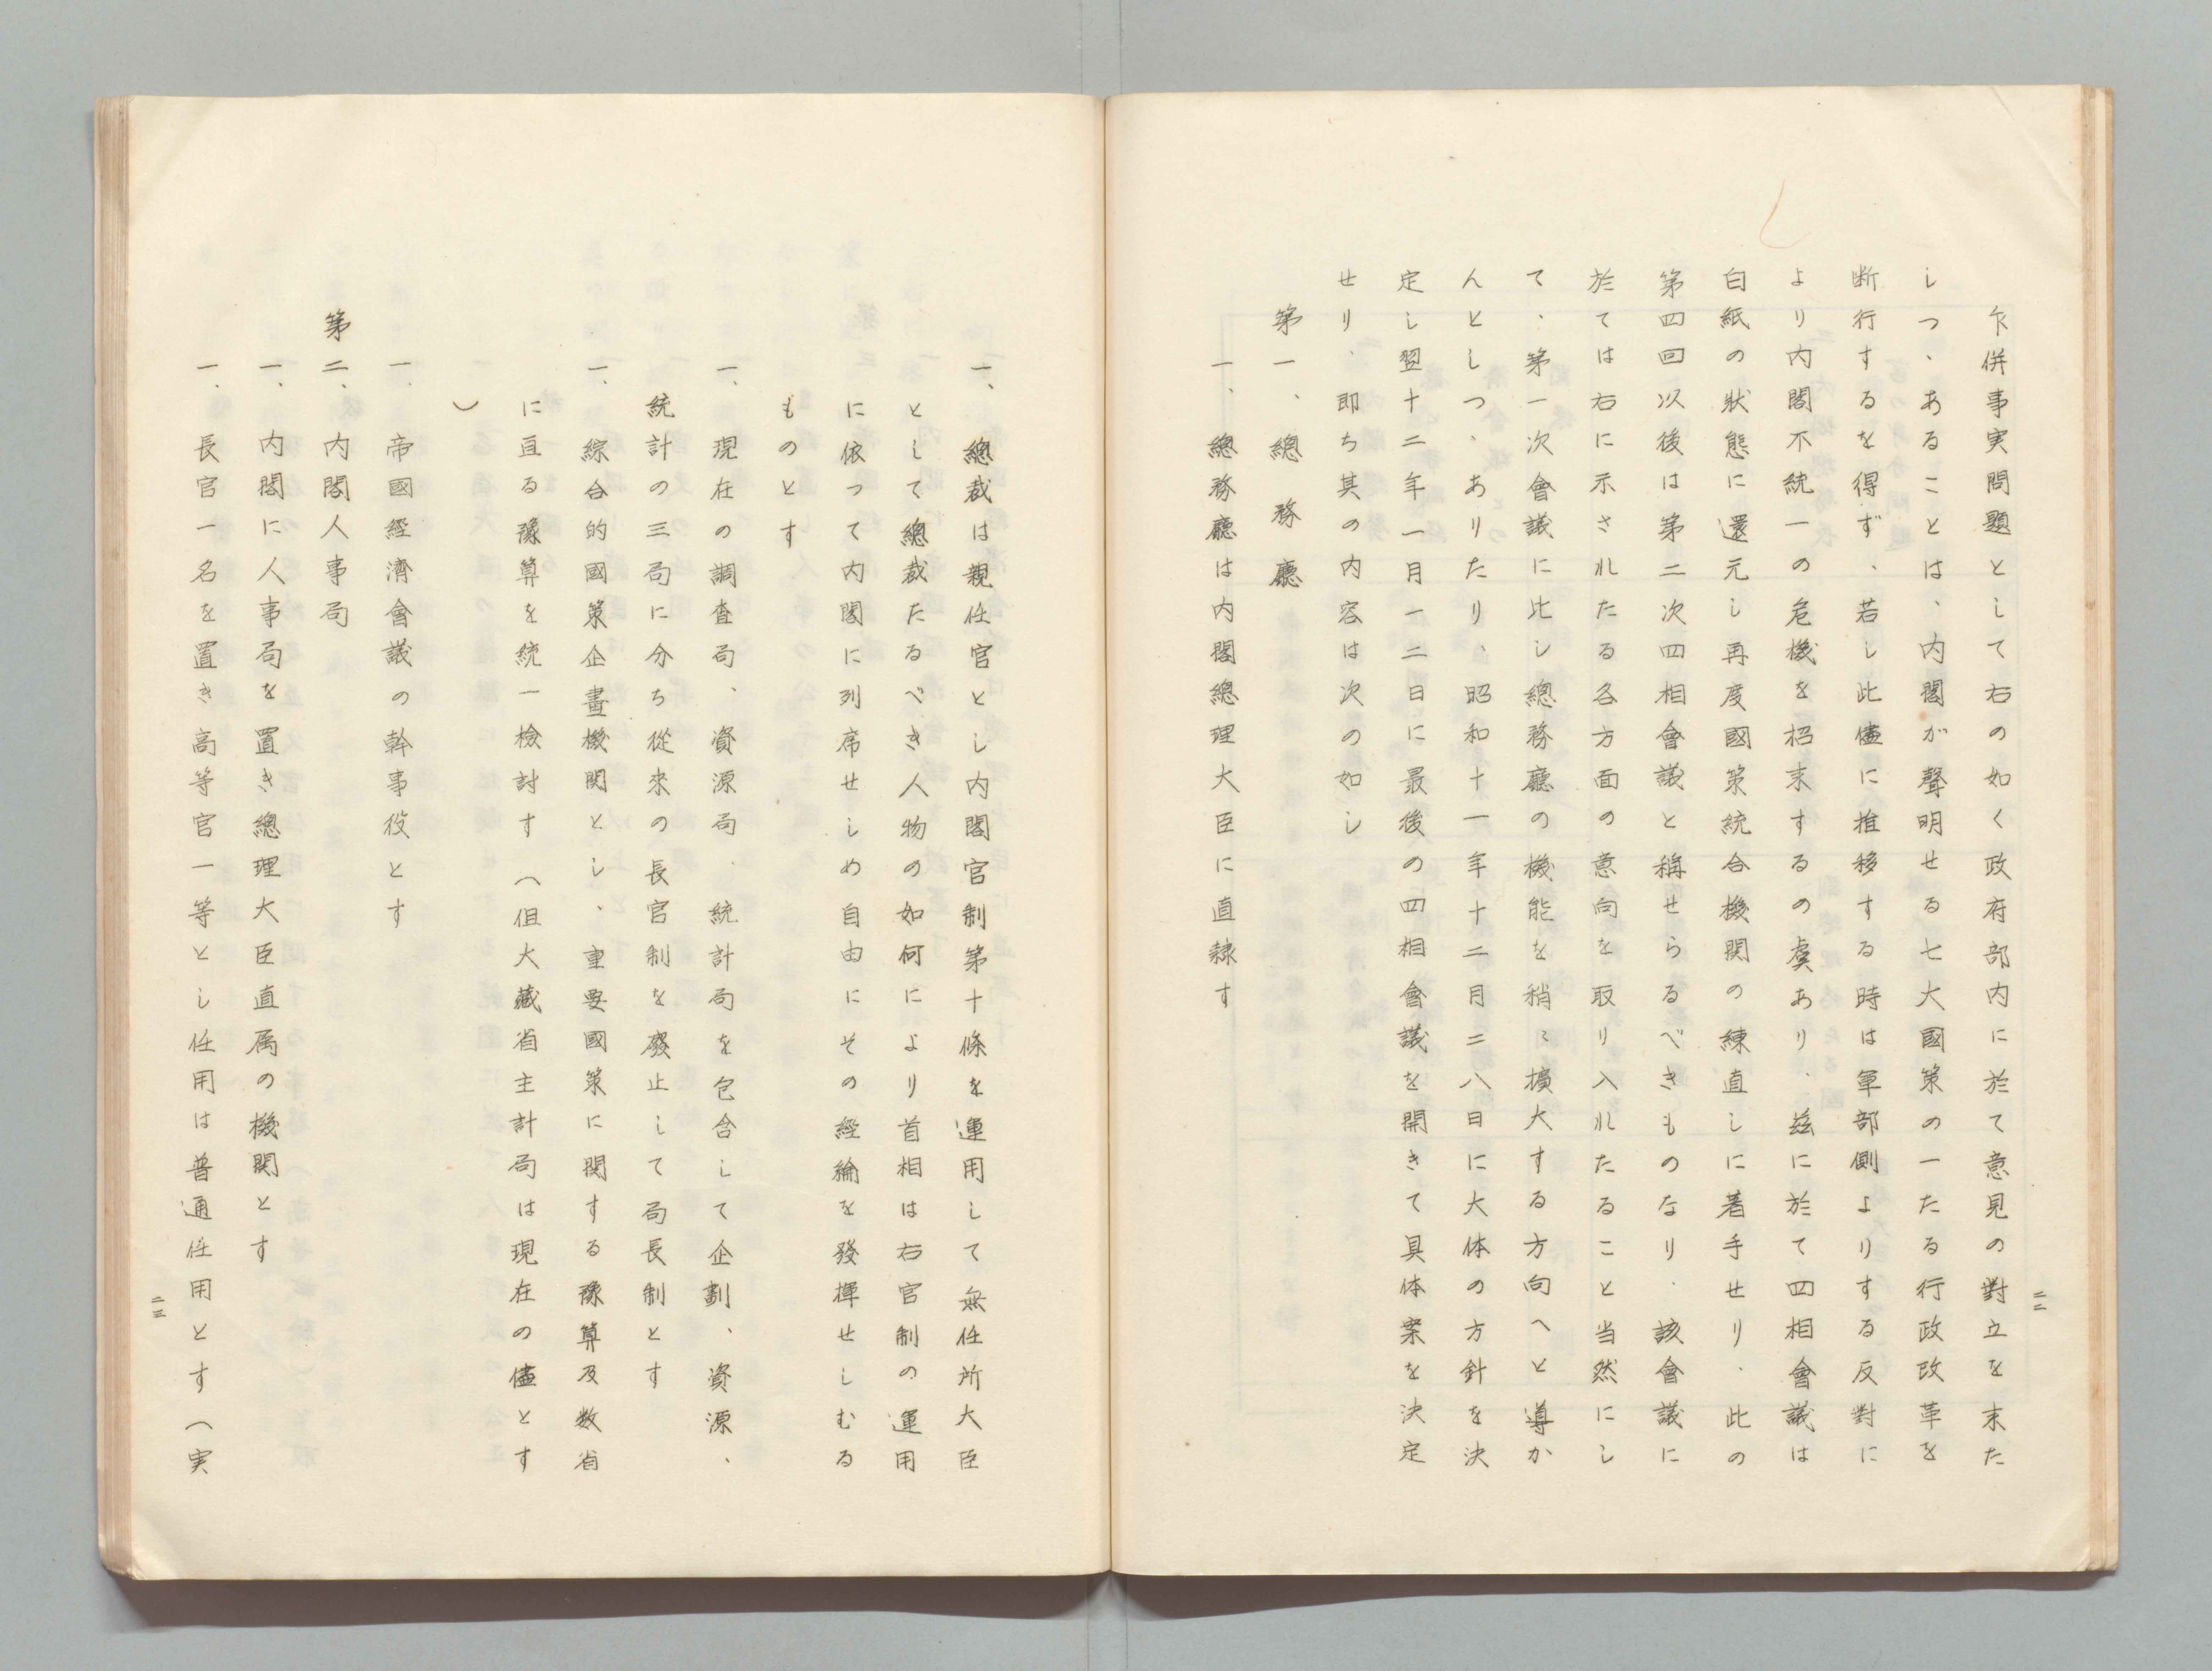 乍併事実問題として右の如く政府部内に於て意見の對立を来た
しつゝあることは、内閣が聲明せる七大國策の一たる行政改革を
断行するを得ず、若し此儘に推移する時は軍部側よりする反對に
より内閣不統一の危機を招来するの虞あり、玆に於て四相會議は
白紙の狀態に還元し再度國策統合機関の練直しに着手せり、此の
第四回以後は第二次四相會議と稱せらるべきものなり、該會議に
於ては右に示されたる各方面の意向を取り入れたること当然にし
て、第一次會議に比し總務廳の機能を稍〻擴大する方向へと導か
んとしつゝありたり、昭和十一年十二月二八日に大体の方針を決
定し翌十二年一月一二日に最後の四相會議を開きて具体案を決定
せり、即ち其の内容は次の如し
第一、總務廳
一、總務廳は内閣總理大臣に直隸す
二二
一、總裁は親任官とし内閣官制第十條を運用して無任所大臣
として總裁たるべき人物の如何により首相は右官制の運用
に依って内閣に列席せしめ自由にその経綸を發揮せしむる
ものとす
一、現在の調査局、資源局、統計局を包含して企劃、資源、
統計の三局に分ち從来の長官制を廢止して局長制とす
一、綜合的國策企畫機関とし、重要國策に関する豫算及数省
に亘る豫算を統一檢討す（但大藏省主計局は現在の儘とす
）
一、帝國経濟會議の幹事役とす
第二、内閣人事局
一、内閣に人事局を置き總理大臣直属の機関とす
一、長官一名を置き高等官一等とし任用は普通任用とす（実
二三